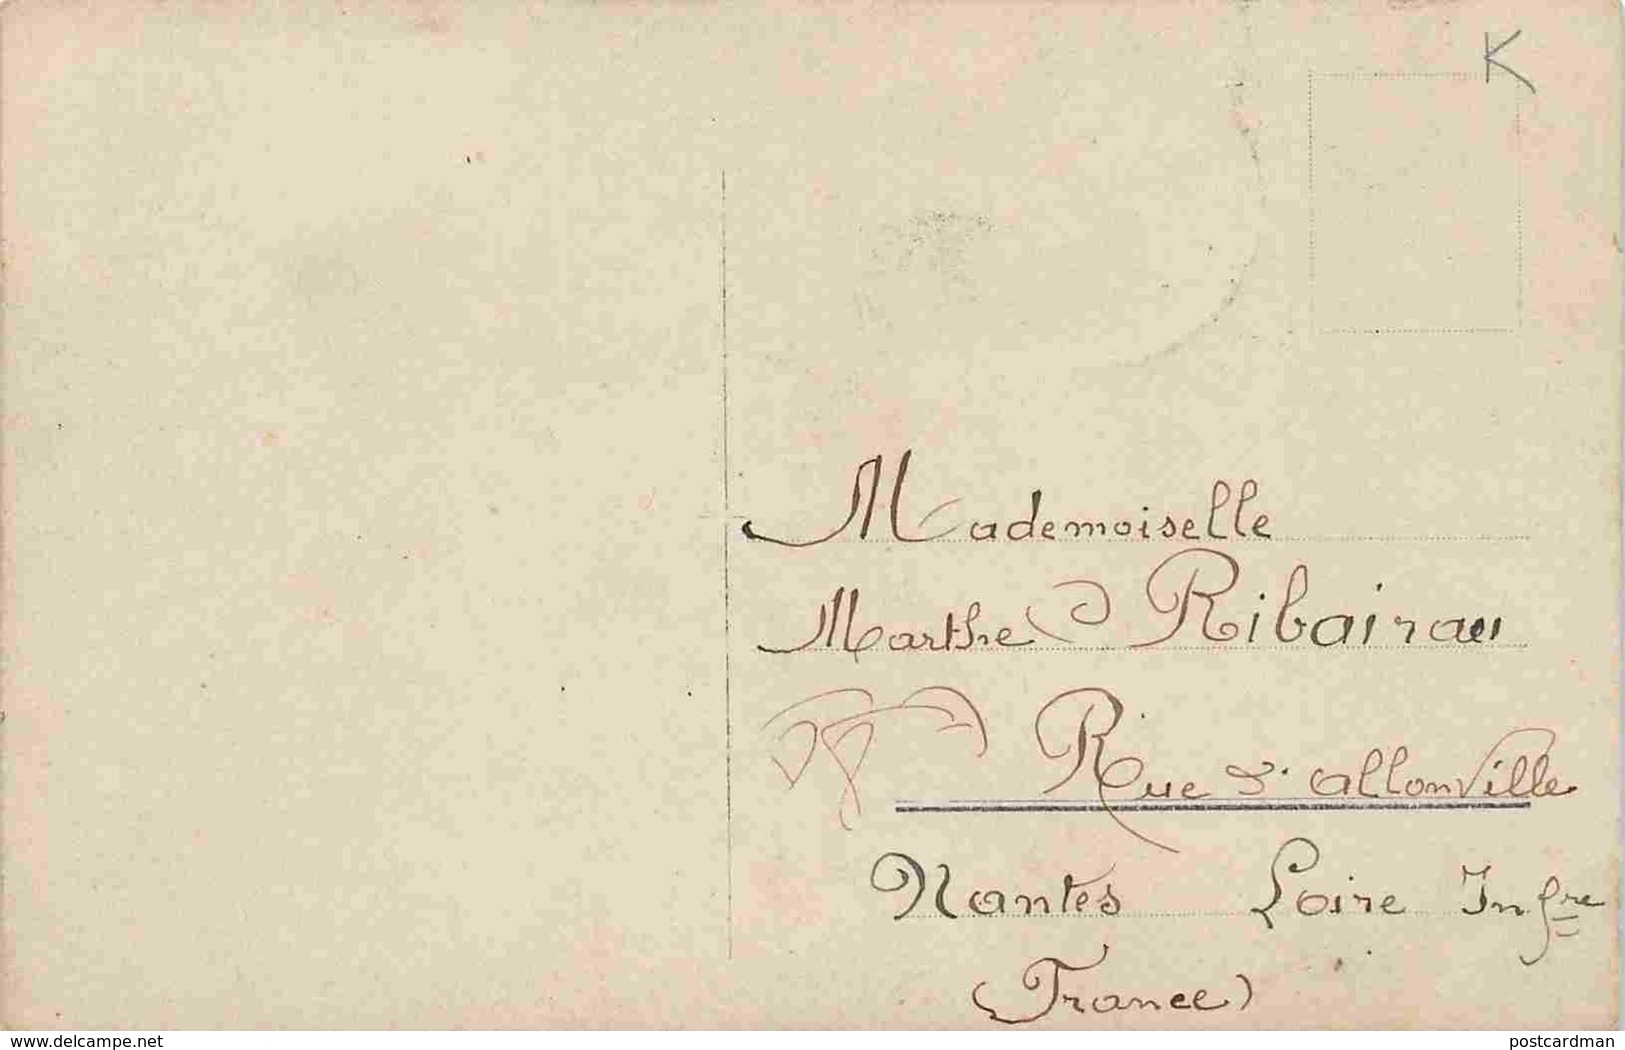 K
Mademoiselle
Marthe Ribairau
Rue d'allonville
Nantes Loire Infre
(France)
www.delcampe.net
postcardman